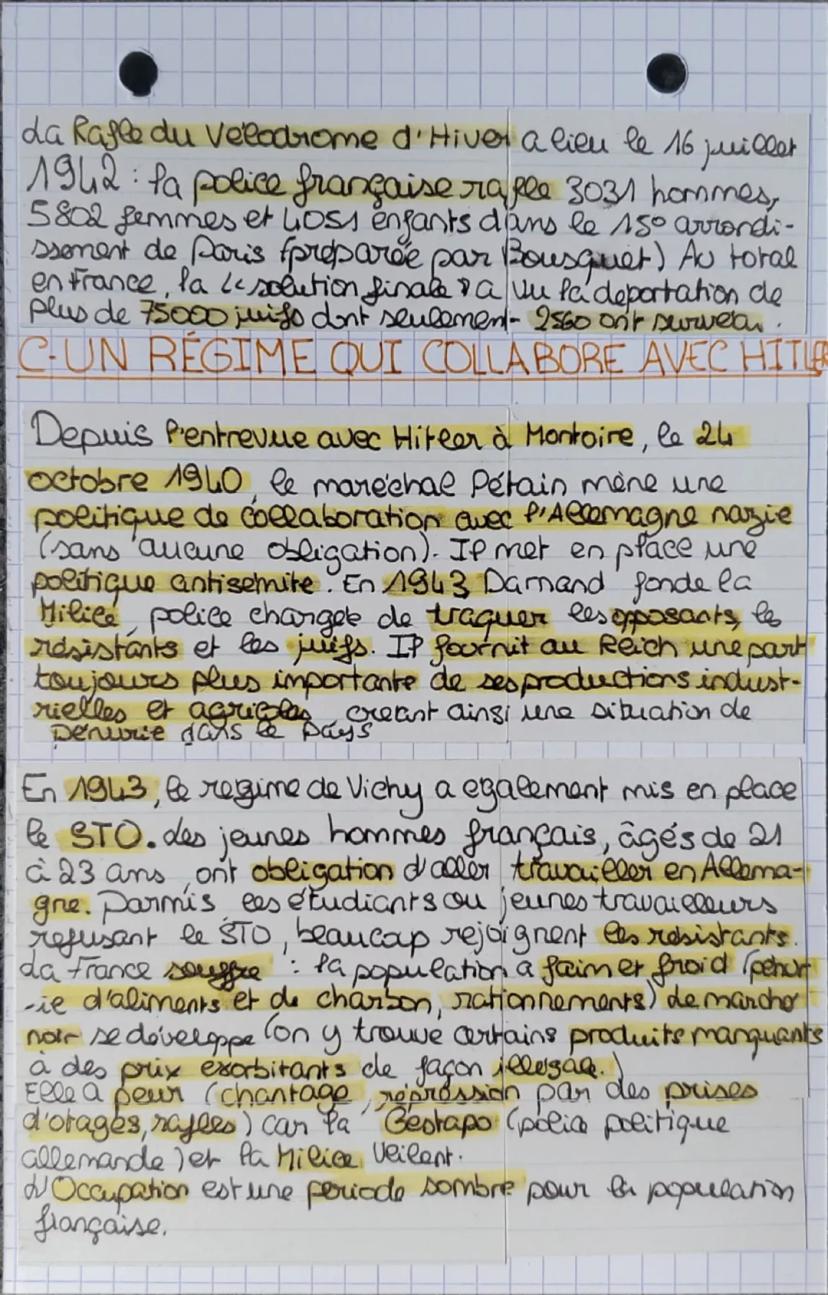 La Rafle du Vélodrome d'Hiver a lieu le 16 juillet
1942 : la police française rafle 3031 hommes,
5802 femmes et 4051 enfants dans le 15° arrondi-
ssement de Paris (préparée par Bousquet) Au total
en France, la « solution finale » a vu la deportation de
plus de 75000 juifs dont seulement 2560 ont survécu.
C-UN RÉGIME QUI COLLABORE AVEC HITLER
Depuis l'entrevue avec Hitler à Montoire, le 24
octobre 1940, le maréchal Pétain mène une
politique de collaboration avec l'Allemagne nazie
(sans aucune obligation). Il met en place une
politique antisémite. En 1943 Darnand fonde la
Milice, police chargée de traquer les opposants, les
résistants et les juifs. Il fournit au Reich une part
toujours plus importante de ses productions indust-
rielles et agricoles, creant ainsi une situation de
pénurie dans le pays
En 1943, le regime de Vichy a egalement mis en place
le STO. des jeunes hommes français, âgés de 21
à 23 ans, ont obligation d'aller travailler en Allema-
gne. Parmis les étudiants ou jeunes travailleurs
refusant le STO, beaucoup rejoignent les résistants.
La France souffre : la population a faim et froid (penur
-ie d'aliments et de charbon, rationnements) Le marché
noir se développe (on y trouve certains produits manquants
à des prix exorbitants de façon illegale.)
Elle a peur (chantage, répression par des prises
d'otages, rafles) car la Gestapo (police politique
allemande) et la Milice veillent.
L'Occupation est une periode sombre pour la population
française.